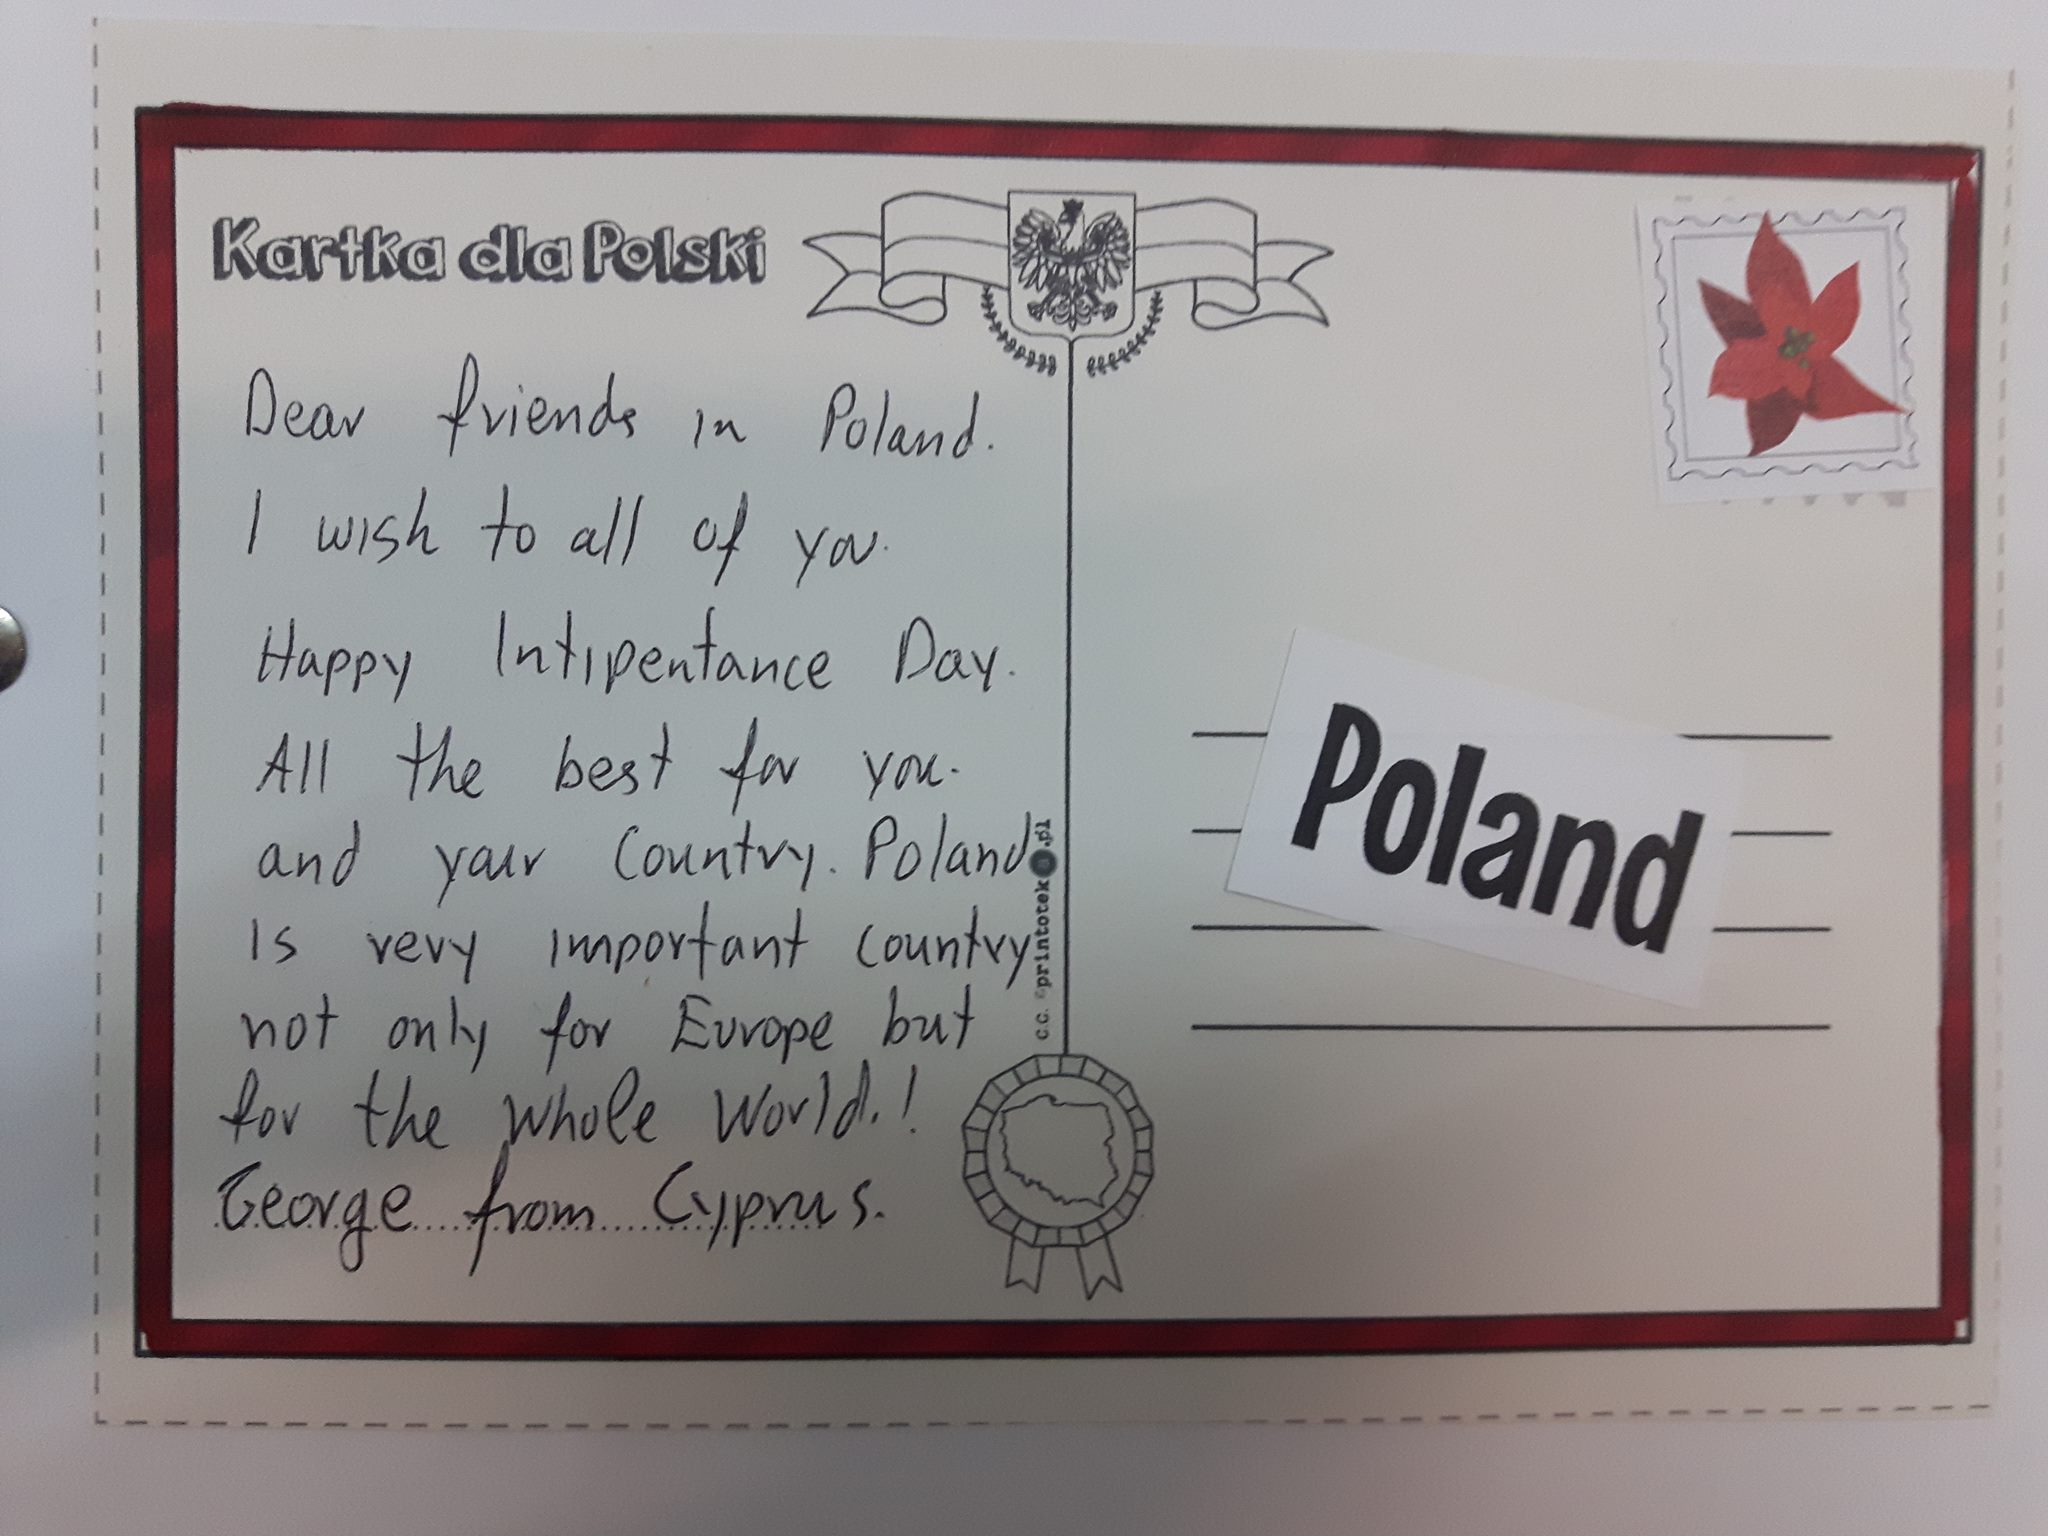 Kartka dla Polski
Dear friends in Poland.
I wish to all of you.
Happy Intipentance Day.
All the best for you.
and your Country. Poland
is very important country
not only for Europe but
for the whole World.!
George from Cyprus.
c.c. ©printoteka.pl
Poland